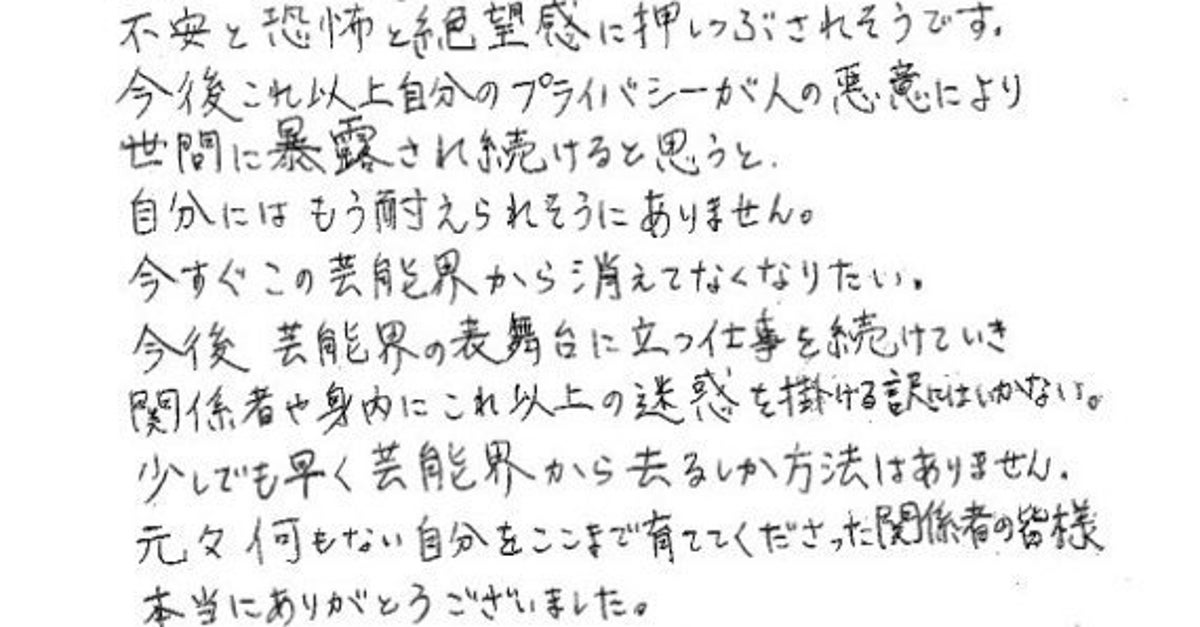 不安と恐怖と絶望感に押しつぶされそうです。
今後これ以上自分のプライバシーが人の悪意により
世間に暴露され続けると思うと、
自分にはもう耐えられそうにありません。
今すぐこの芸能界から消えてなくなりたい。
今後 芸能界の表舞台に立つ仕事を続けていき
関係者や身内にこれ以上の迷惑を掛ける訳にはいかない。
少しでも早く芸能界から去るしか方法はありません。
元々何もない自分をここまで育ててくださった関係者の皆様
本当にありがとうございました。